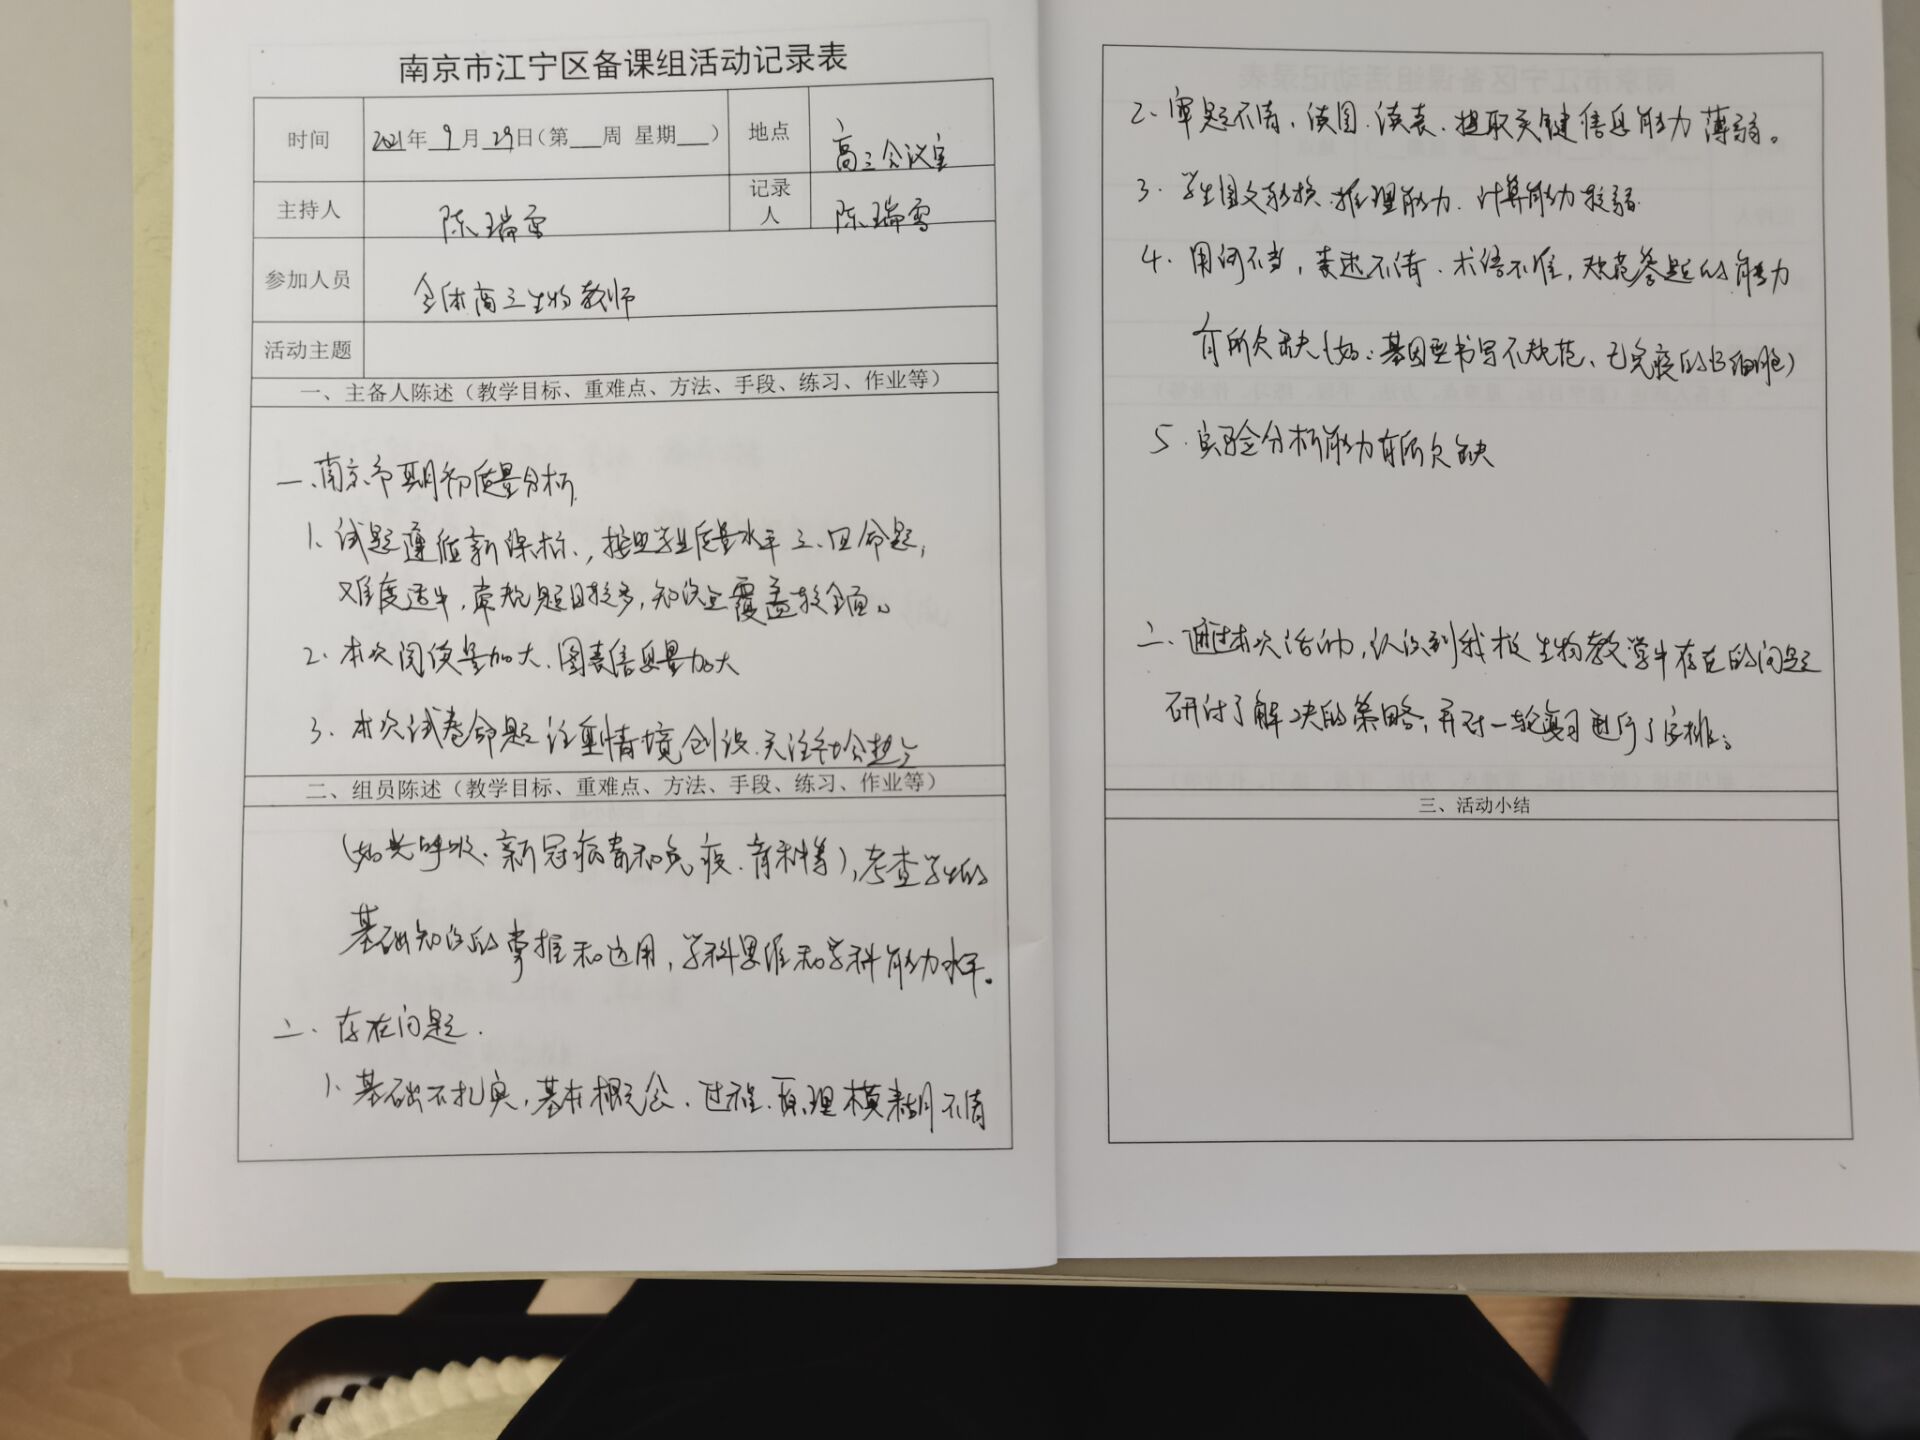 南京市江宁区备课组活动记录表
时间 2021年 9 月 29日(第___周 星期___) 地点 高三会议室
主持人 陈瑞雪 记录人 陈瑞雪
参加人员 全体高三生物教师
活动主题
一、主备人陈述（教学目标、重难点、方法、手段、练习、作业等）
一、南京市期初质量分析
1、试题遵循新课标，按照学业质量水平三、四命题，
难度适中，常规题目较多，知识点覆盖较全面。
2、本次阅读量加大、图表信息量加大
3、本次试卷命题注重情境创设、关注社会热点
二、组员陈述（教学目标、重难点、方法、手段、练习、作业等）
(如光呼吸、新冠病毒和免疫、育种等)，考查学生的
基础知识的掌握和运用，学科思维和学科能力水平。
二、存在问题.
1、基础不扎实，基本概念、过程、原理模糊不清
2、审题不清、读图、读表、提取关键信息能力薄弱。
3、学生图文转换、推理能力、计算能力较弱.
4、用词不当，表述不清、术语不准，规范答题的能力
有所欠缺(如：基因型书写不规范、已免疫的B细胞)
5、实验分析能力有所欠缺
二、通过本次活动，认识到我校生物教学中存在的问题
研讨了解决的策略，并对一轮复习进行了安排。
三、活动小结